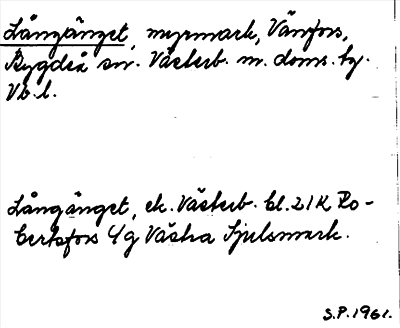 Långänget, myrmark, Vänfors,
Bygdeå sn. Västerb. m. doms. by.
Vb. l.
Långänget, ek. Västerb. bl. 21K Ro-
bertsfors 4g Västra Sjulsmark.
S.P. 1961.